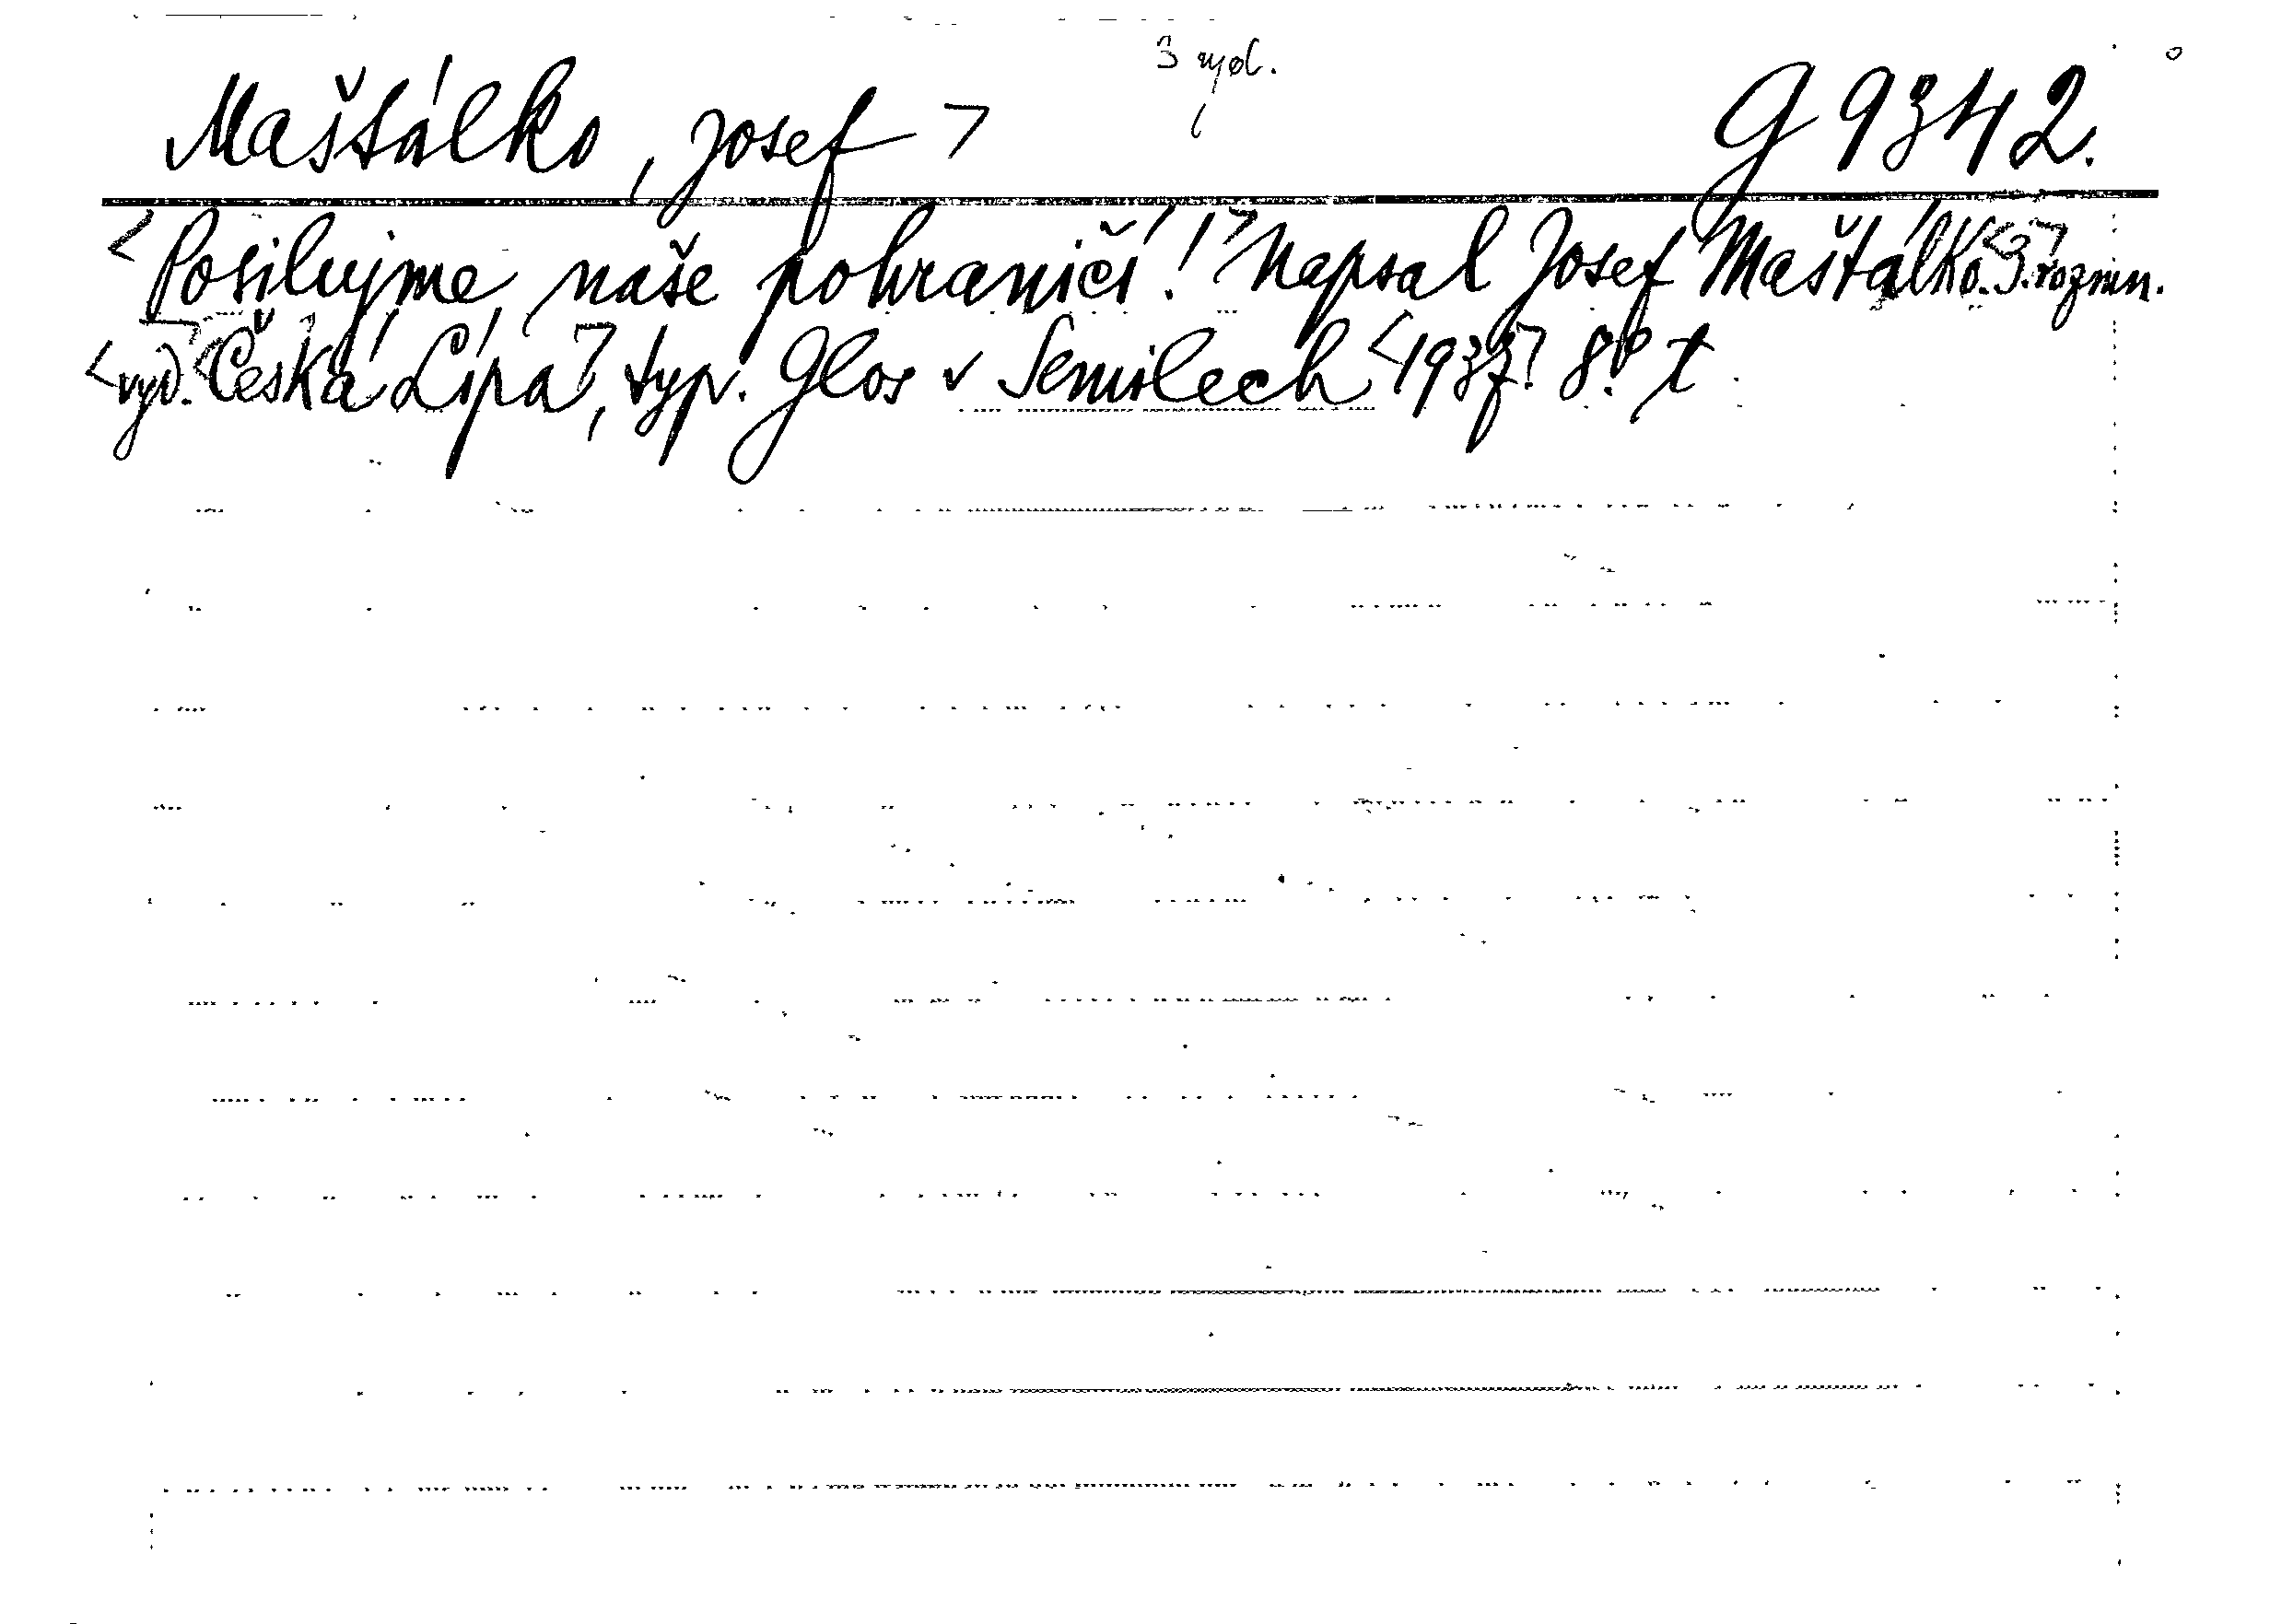 3 vyd.
Maštálko, Josef > G 9342.
<Posilujme naše pohraničí!> Napsal Josef Maštálko. <3.> rozmn.
<vyd.> <Česká Lípa>, typ. Glos v Semilech <1937> 8.° t